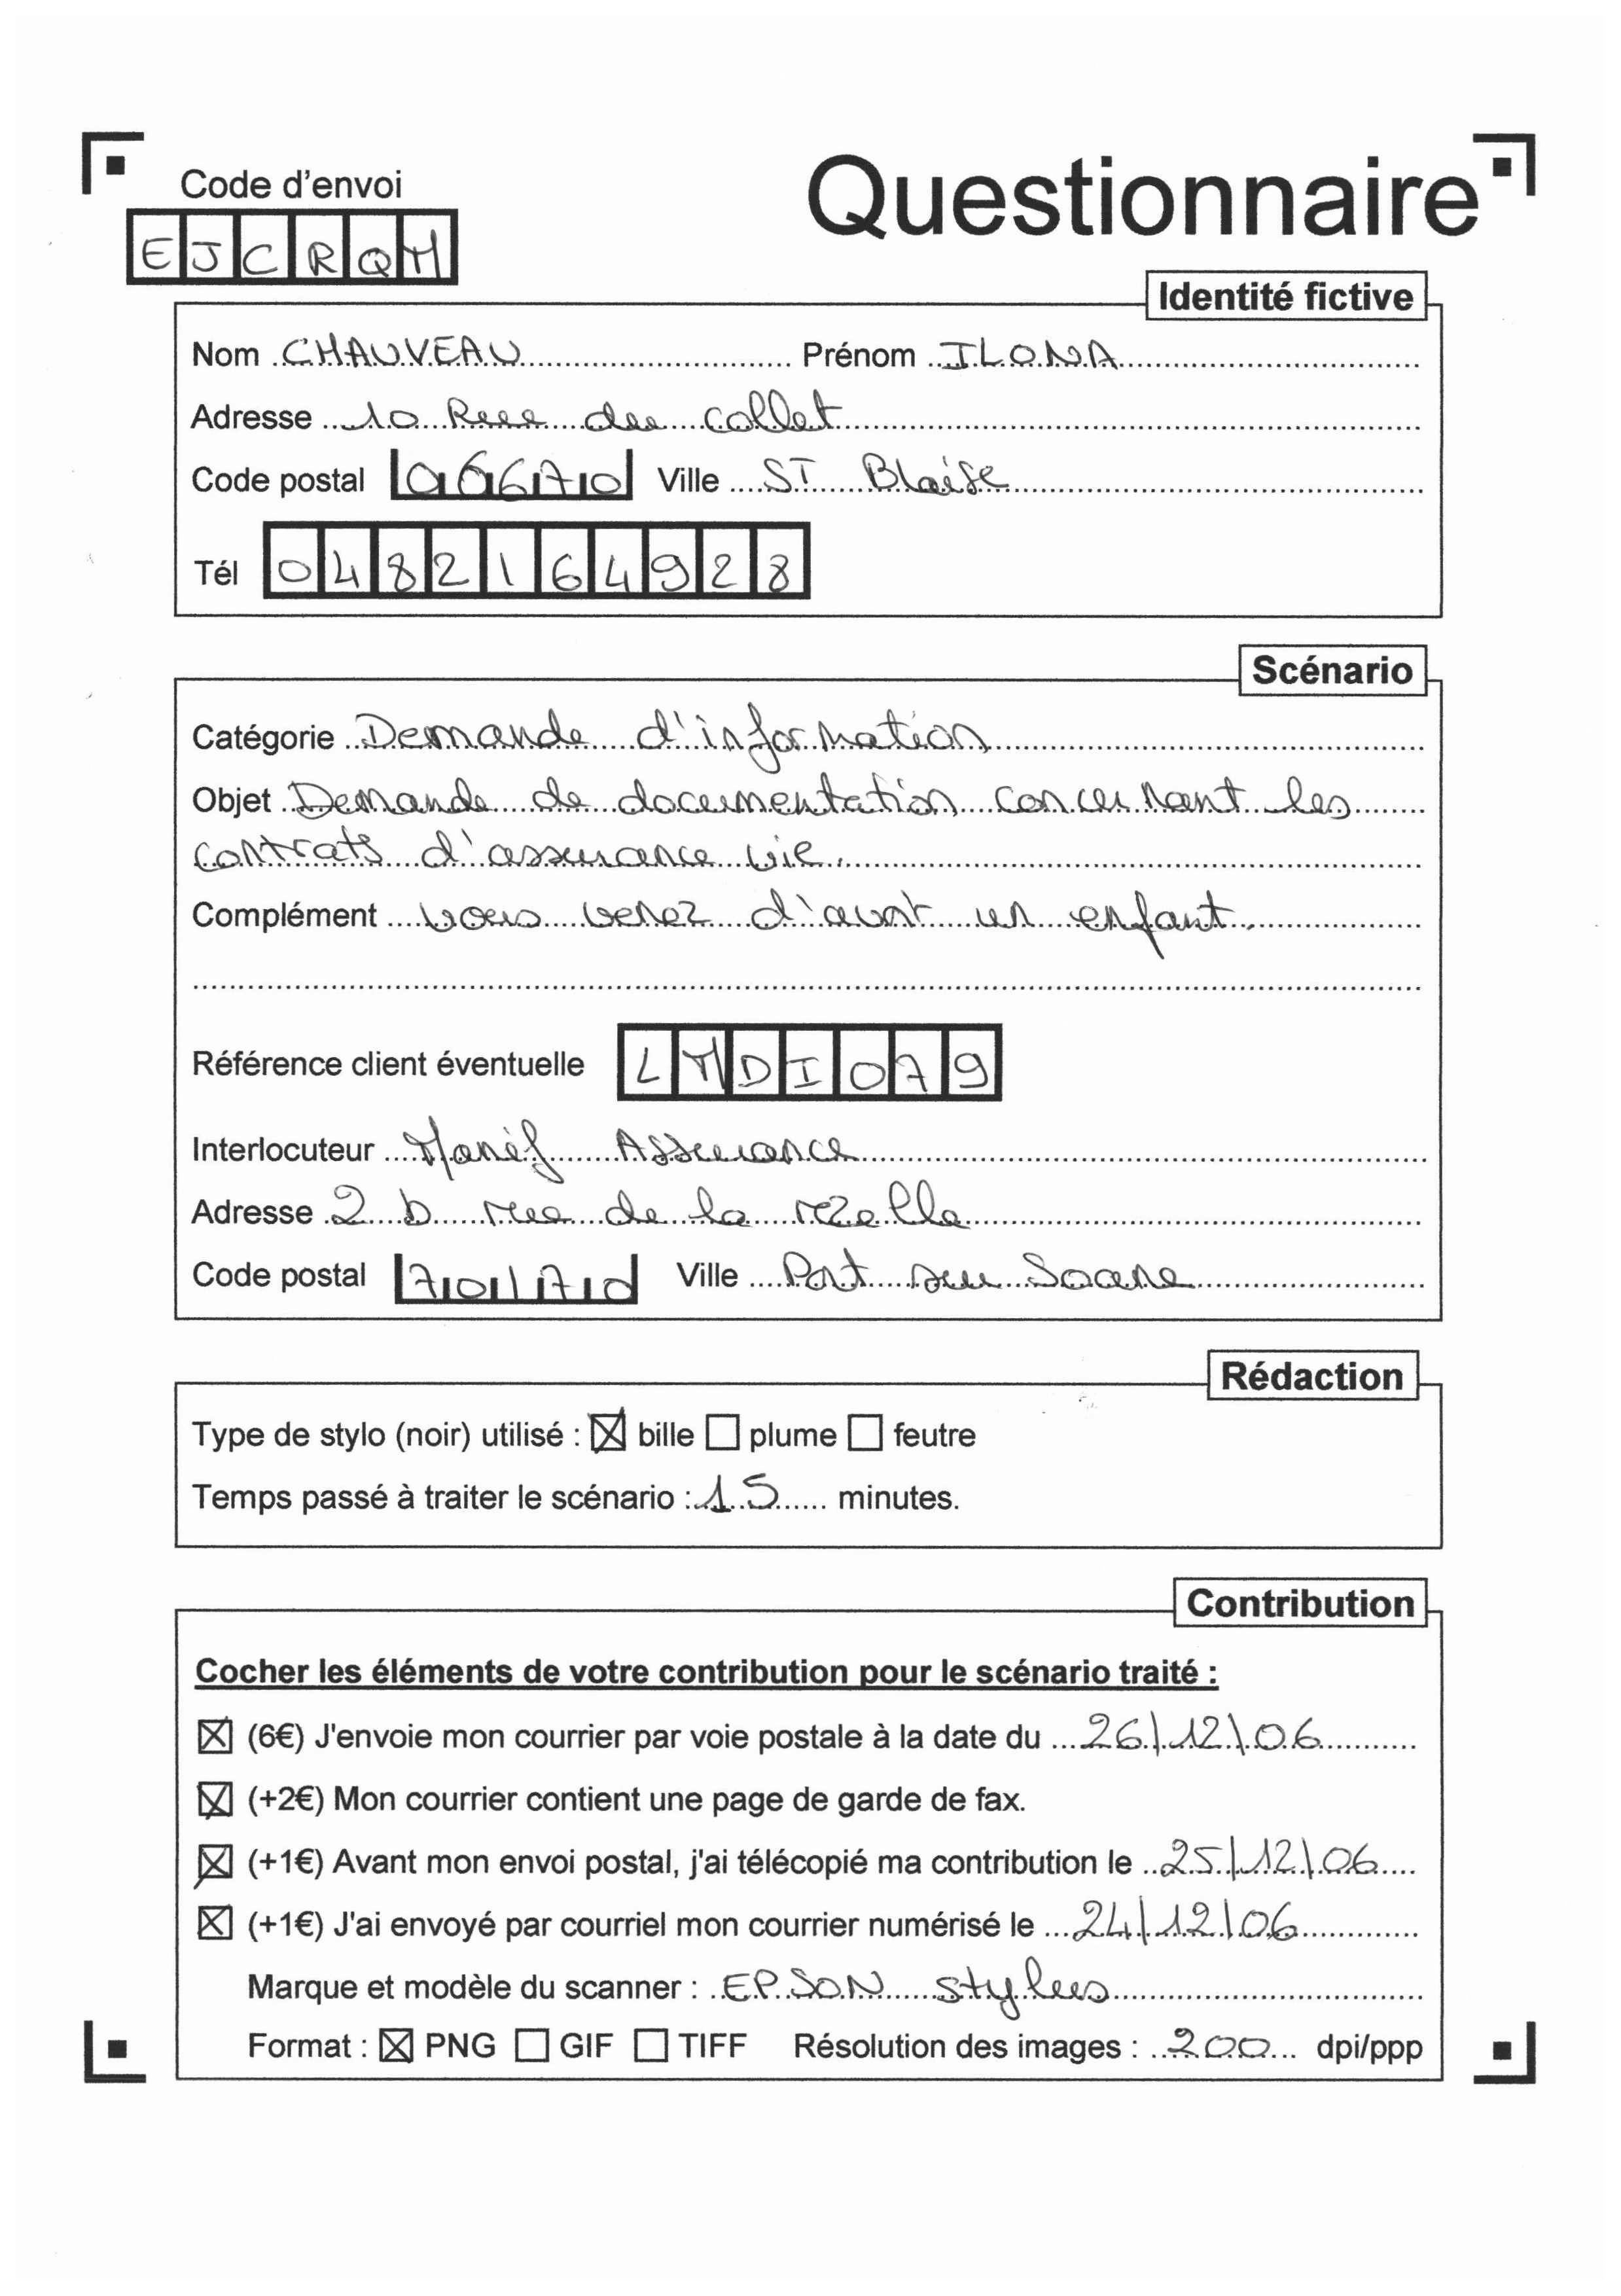 Code d'envoi
Questionnaire
EJCRQM
Identité fictive
Nom CHAUVEAU Prénom ILONA
Adresse 10 Rue du collet
Code postal 06670 Ville ST Blaise
Tél 0482164928
Scénario
Catégorie Demande d'information
Objet Demande de documentation concernant les
contrats d'assurance vie.
Complément vous venez d'avoir un enfant.
Référence client éventuelle LMDI079
Interlocuteur Manéf Assurance
Adresse 2 b rue de la rézelle
Code postal 70170 Ville Port sur Saone
Rédaction
Type de stylo (noir) utilisé : ☒ bille ☐ plume ☐ feutre
Temps passé à traiter le scénario : 15 minutes.
Contribution
Cocher les éléments de votre contribution pour le scénario traité :
☒ (6€) J'envoie mon courrier par voie postale à la date du 26/12/06
☒ (+2€) Mon courrier contient une page de garde de fax.
☒ (+1€) Avant mon envoi postal, j'ai télécopié ma contribution le 25/12/06
☒ (+1€) J'ai envoyé par courriel mon courrier numérisé le 24/12/06
Marque et modèle du scanner : EPSON stylus
Format : ☒ PNG ☐ GIF ☐ TIFF Résolution des images : 200 dpi/ppp